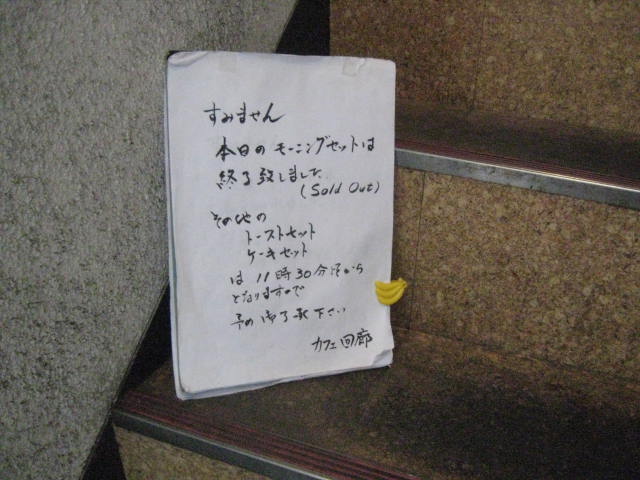 すみません
本日のモーニングセットは
終了致しました
(Sold Out)
その他の
トーストセット
ケーキセット
は 11時30分頃から
となりますので
予め御了承下さい
カフェ回廊